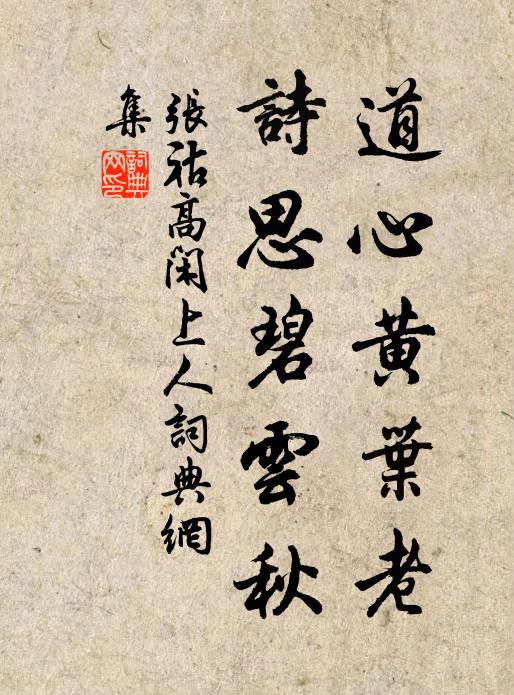 道心黃葉老
詩思碧雲秋
張祜高閑上人詞典網
集
詞典網印